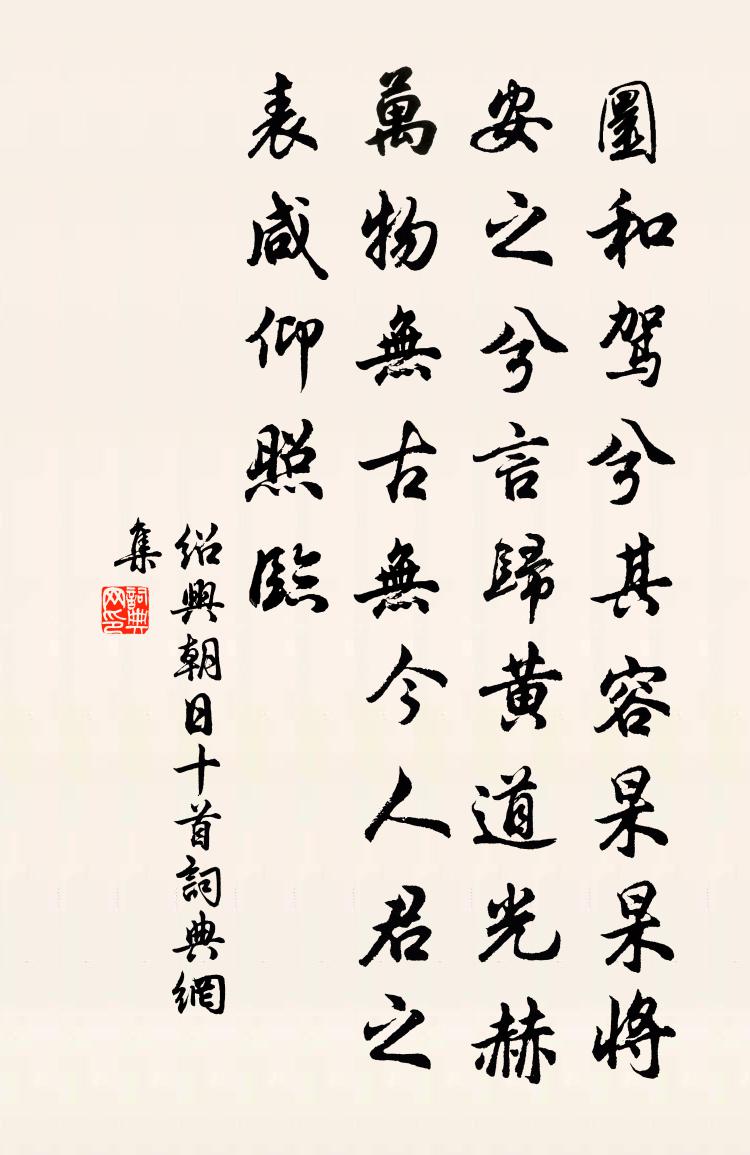 圖和駕兮其容杲杲將
安之兮言歸黃道光赫
萬物無古無今人君之
表咸仰照臨
紹興朝日十首詞典網
集
詞典
网印